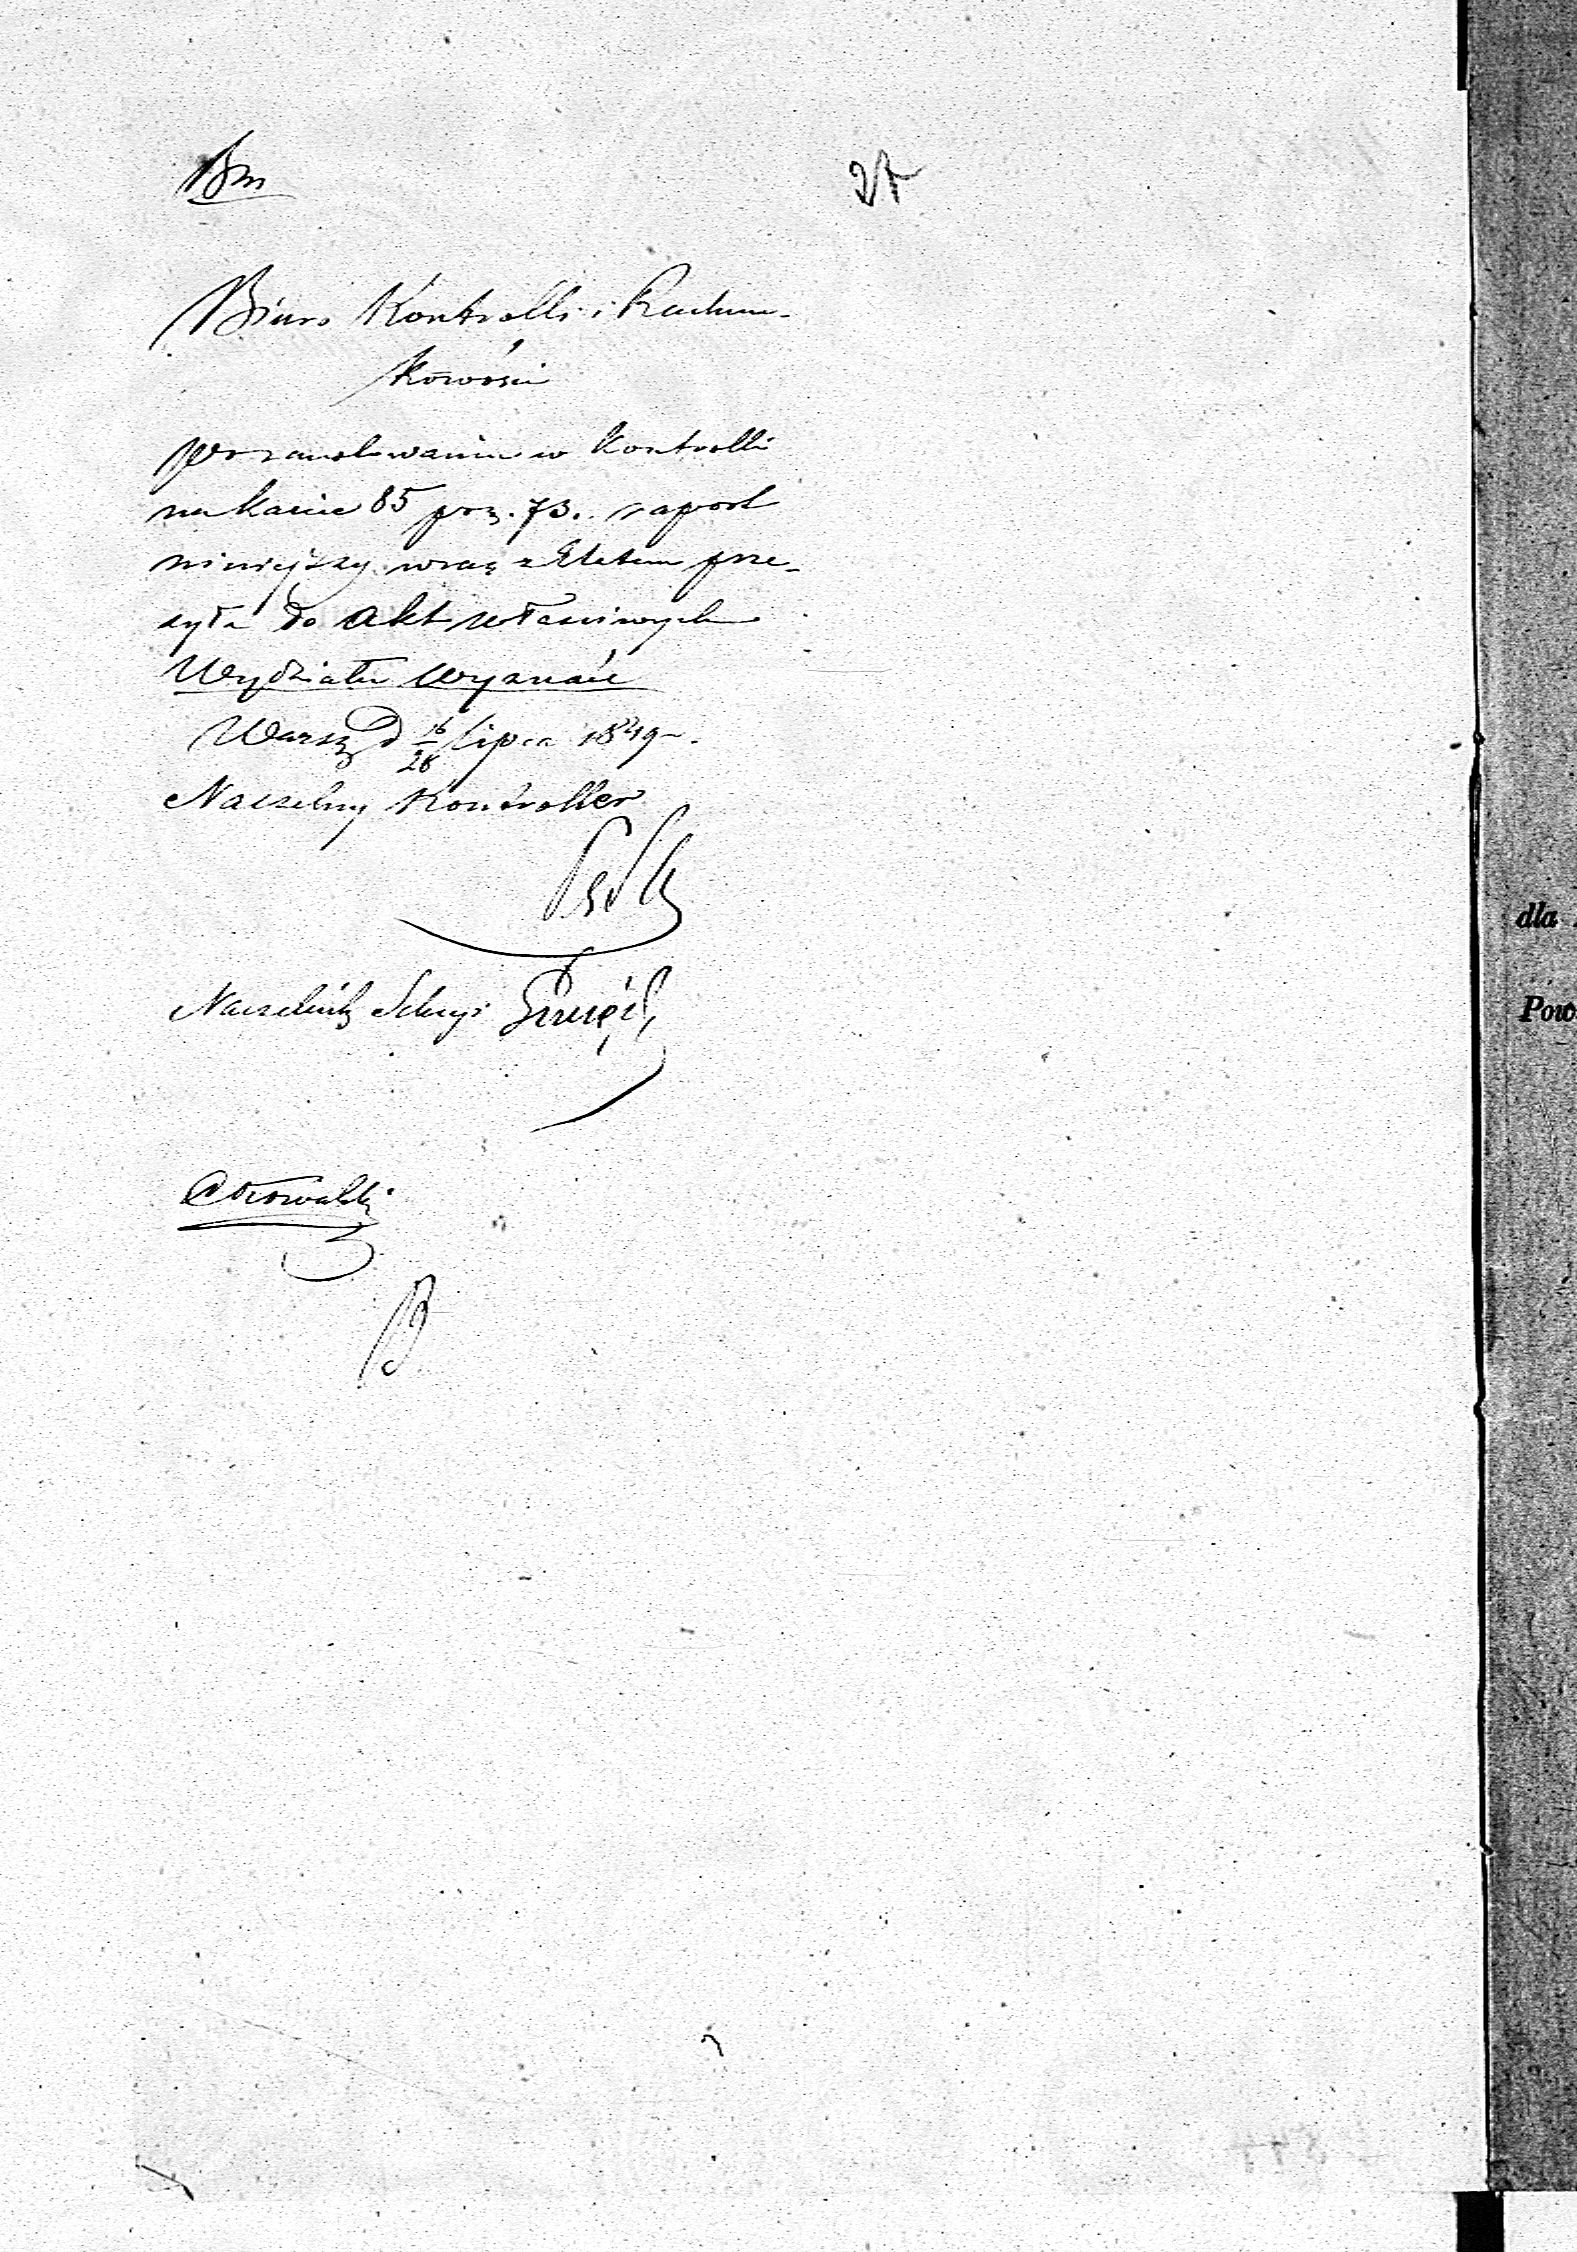 Bm
27
Biuro Kontrolli i Rachun-
kowości
po zanotowaniu w Kontrolli
na karcie 85 poz. 73. raport
niniejszy wraz z Etatem prze-
syła do akt właściwych
Wydziału Wyznań
Warsz d 16/28 Lipca 1849 r.
Naczelny Kontroller
Naczelnik Sekcyi
dla
Pow